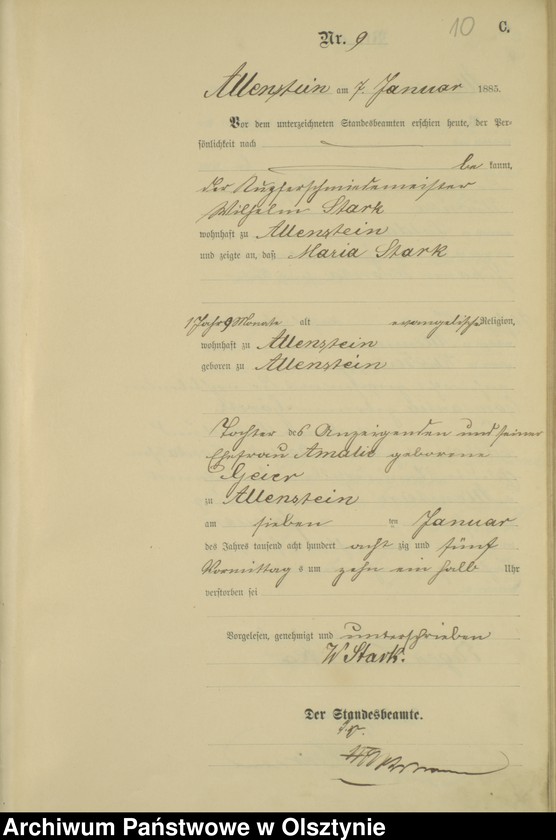 10 C.
Nr. 9
Allenstein am 7. Januar 1885.
Vor dem unterzeichneten Standesbeamten erschien heute, der Per-
sönlichkeit nach
be kannt,
der Kupferschmiedemeister
Wilhelm Stark
wohnhaft zu Allenstein
und zeigte an, daß Maria Stark
1 Jahr 9 Monate alt evangelische Religion,
wohnhaft zu Allenstein
geboren zu Allenstein
Tochter des Anzeigenden und seiner
Ehefrau Amalie geborene
Geier
zu Allenstein
am sieben ten Januar
des Jahres tausend acht hundert acht zig und fünf
Vormittag s um zehn ein halb Uhr
verstorben sei
Vorgelesen, genehmigt und unterschrieben
W Stark.
Der Standesbeamte.
Archiwum Państwowe w Olsztynie